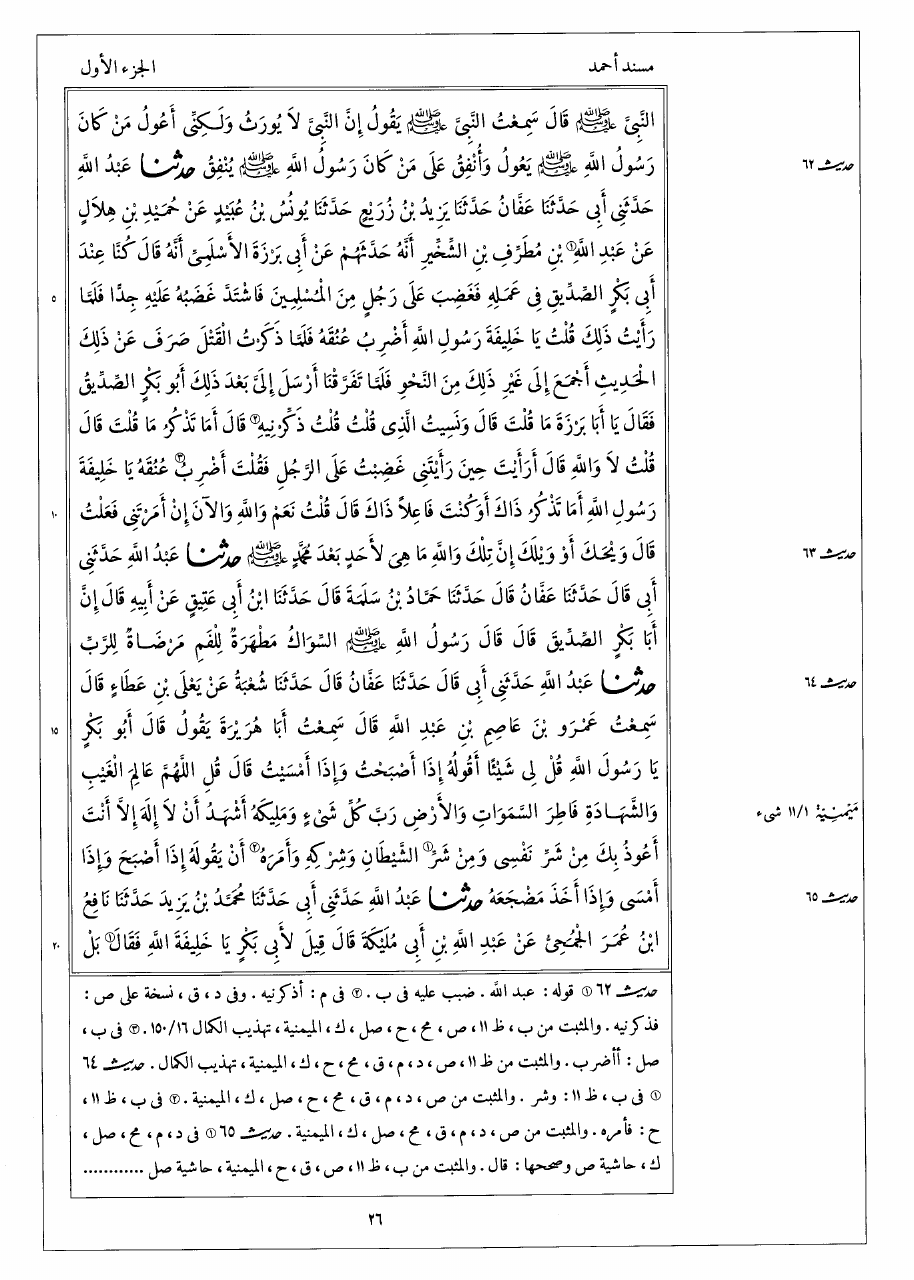 مسند أحمد
الجزء الأول
النَّبِيَّ ﷺ قَالَ سَمِعْتُ النَّبِيَّ ﷺ يَقُولُ إِنَّ النَّبِيَّ لاَ يُورَثُ وَلَـكِنِّى أَعُولُ مَنْ كَانَ
رَسُولُ اللَّهِ ﷺ يَعُولُ وَأُنْفِقُ عَلَى مَنْ كَانَ رَسُولُ اللَّهِ ﷺ يُنْفِقُ حدثنا عَبْدُ اللَّهِ
حديث ٦٢
حَدَّثَنِى أَبِى حَدَّثَنَا عَفَّانُ حَدَّثَنَا يَزِيدُ بْنُ زُرَيْعٍ حَدَّثَنَا يُونُسُ بْنُ عُبَيْدٍ عَنْ حُمَيْدِ بْنِ هِلاَلٍ
عَنْ عَبْدِ اللَّهِ① بْنِ مُطَرِّفِ بْنِ الشِّخِّيرِ أَنَّهُ حَدَّثَهُمْ عَنْ أَبِى بَرْزَةَ الأَسْلَمِىِّ أَنَّهُ قَالَ كُنَّا عِنْدَ
أَبِى بَكْرٍ الصِّدِّيقِ فِى عَمَلِهِ فَغَضِبَ عَلَى رَجُلٍ مِنَ الْمُسْلِمِينَ فَاشْتَدَّ غَضَبُهُ عَلَيْهِ جِدًّا فَلَمَّا
٥
رَأَيْتُ ذَلِكَ قُلْتُ يَا خَلِيفَةَ رَسُولِ اللَّهِ أَضْرِبُ عُنُقَهُ فَلَمَّا ذَكَرْتُ الْقَتْلَ صَرَفَ عَنْ ذَلِكَ
الْحَدِيثِ أَجْمَعَ إِلَى غَيْرِ ذَلِكَ مِنَ النَّحْوِ فَلَمَّا تَفَرَّقْنَا أَرْسَلَ إِلَىَّ بَعْدَ ذَلِكَ أَبُو بَكْرٍ الصِّدِّيقُ
فَقَالَ يَا أَبَا بَرْزَةَ مَا قُلْتَ قَالَ وَنَسِيتُ الَّذِى قُلْتُ قُلْتُ ذَكِّرْنِيهِ② قَالَ أَمَا تَذْكُرُ مَا قُلْتَ قَالَ
قُلْتُ لاَ وَاللَّهِ قَالَ أَرَأَيْتَ حِينَ رَأَيْتَنِى غَضِبْتُ عَلَى الرَّجُلِ فَقُلْتَ أَضْرِبُ③ عُنُقَهُ يَا خَلِيفَةَ
رَسُولِ اللَّهِ أَمَا تَذْكُرُ ذَاكَ أَوَكُنْتَ فَاعِلاً ذَاكَ قَالَ قُلْتُ نَعَمْ وَاللَّهِ وَالآنَ إِنْ أَمَرْتَنِى فَعَلْتُ
١٠
قَالَ وَيْحَكَ أَوْ وَيْلَكَ إِنَّ تِلْكَ وَاللَّهِ مَا هِىَ لأَحَدٍ بَعْدَ مُحَمَّدٍ ﷺ حدثنا عَبْدُ اللَّهِ حَدَّثَنِى
حديث ٦٣
أَبِى قَالَ حَدَّثَنَا عَفَّانُ قَالَ حَدَّثَنَا حَمَّادُ بْنُ سَلَمَةَ قَالَ حَدَّثَنَا ابْنُ أَبِى عَتِيقٍ عَنْ أَبِيهِ قَالَ إِنَّ
أَبَا بَكْرٍ الصِّدِّيقَ قَالَ قَالَ رَسُولُ اللَّهِ ﷺ السِّوَاكُ مَطْهَرَةٌ لِلْفَمِ مَرْضَـاةٌ لِلرَّبِّ
حدثنا عَبْدُ اللَّهِ حَدَّثَنِى أَبِى قَالَ حَدَّثَنَا عَفَّانُ قَالَ حَدَّثَنَا شُعْبَةُ عَنْ يَعْلَى بْنِ عَطَاءٍ قَالَ
حديث ٦٤
سَمِعْتُ عَمْرَو بْنَ عَاصِمِ بْنِ عَبْدِ اللَّهِ قَالَ سَمِعْتُ أَبَا هُرَيْرَةَ يَقُولُ قَالَ أَبُو بَكْرٍ
١٥
يَا رَسُولَ اللَّهِ قُلْ لِى شَيْئًا أَقُولُهُ إِذَا أَصْبَحْتُ وَإِذَا أَمْسَيْتُ قَالَ قُلِ اللَّهُمَّ عَالِمَ الْغَيْبِ
وَالشَّهَادَةِ فَاطِرَ السَّمَوَاتِ وَالأَرْضِ رَبَّ كُلِّ شَىْءٍ وَمَلِيكَهُ أَشْهَدُ أَنْ لاَ إِلَهَ إِلاَّ أَنْتَ
مَيْمنِيّة ١١/١ شىء
أَعُوذُ بِكَ مِنْ شَرِّ نَفْسِى وَمِنْ شَرِّ① الشَّيْطَانِ وَشِرْكِهِ وَأَمَرَهُ② أَنْ يَقُولَهُ إِذَا أَصْبَحَ وَإِذَا
أَمْسَى وَإِذَا أَخَذَ مَضْجَعَهُ حدثنا عَبْدُ اللَّهِ حَدَّثَنِى أَبِى حَدَّثَنَا مُحَمَّدُ بْنُ يَزِيدَ حَدَّثَنَا نَافِعُ
حديث ٦٥
ابْنُ عُمَرَ الْجُمَحِىُّ عَنْ عَبْدِ اللَّهِ بْنِ أَبِى مُلَيْكَةَ قَالَ قِيلَ لأَبِى بَكْرٍ يَا خَلِيفَةَ اللَّهِ فَقَالَ① بَلْ
٢٠
حديث ٦٢ ① قوله : عبد الله . ضبب عليه فى ب . ② فى م : أذكرنيه . وفى د ، ق ، نسخة على ص :
فذكرنيه . والمثبت من ب ، ظ ١١ ، ص ، مح ، ح ، صل ، ك ، الميمنية ، تهذيب الكمال ١٥٠/١٦ . ③ فى ب ،
صل : أأضرب . والمثبت من ظ ١١ ، ص ، د ، م ، ق ، مح ، ح ، ك ، الميمنية ، تهذيب الكمال . حديث ٦٤
① فى ب ، ظ ١١ : وشر . والمثبت من ص ، د ، م ، ق ، مح ، ح ، صل ، ك ، الميمنية . ② فى ب ، ظ ١١ ،
ح : فأمره . والمثبت من ص ، د ، م ، ق ، مح ، صل ، ك ، الميمنية . حديث ٦٥ ① فى د ، م ، مح ، صل ،
ك ، حاشية ص وصححها : قال . والمثبت من ب ، ظ ١١ ، ص ، ق ، ح ، الميمنية ، حاشية صل ............
٢٦